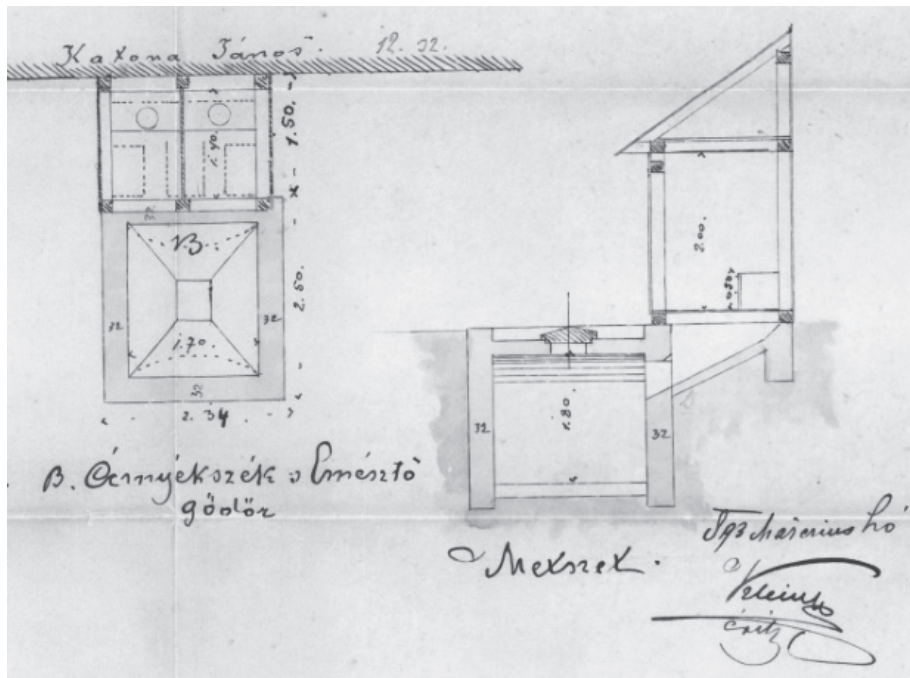 Katona János. 12. 32.
1.50.
1.40.
32
B
2.50.
32
32
1.70
32
2.34
B. Árnyékszék s Emésztő
gödör
2.00.
0.50
1.80.
32
32
Metszet.
Március hó
épitő